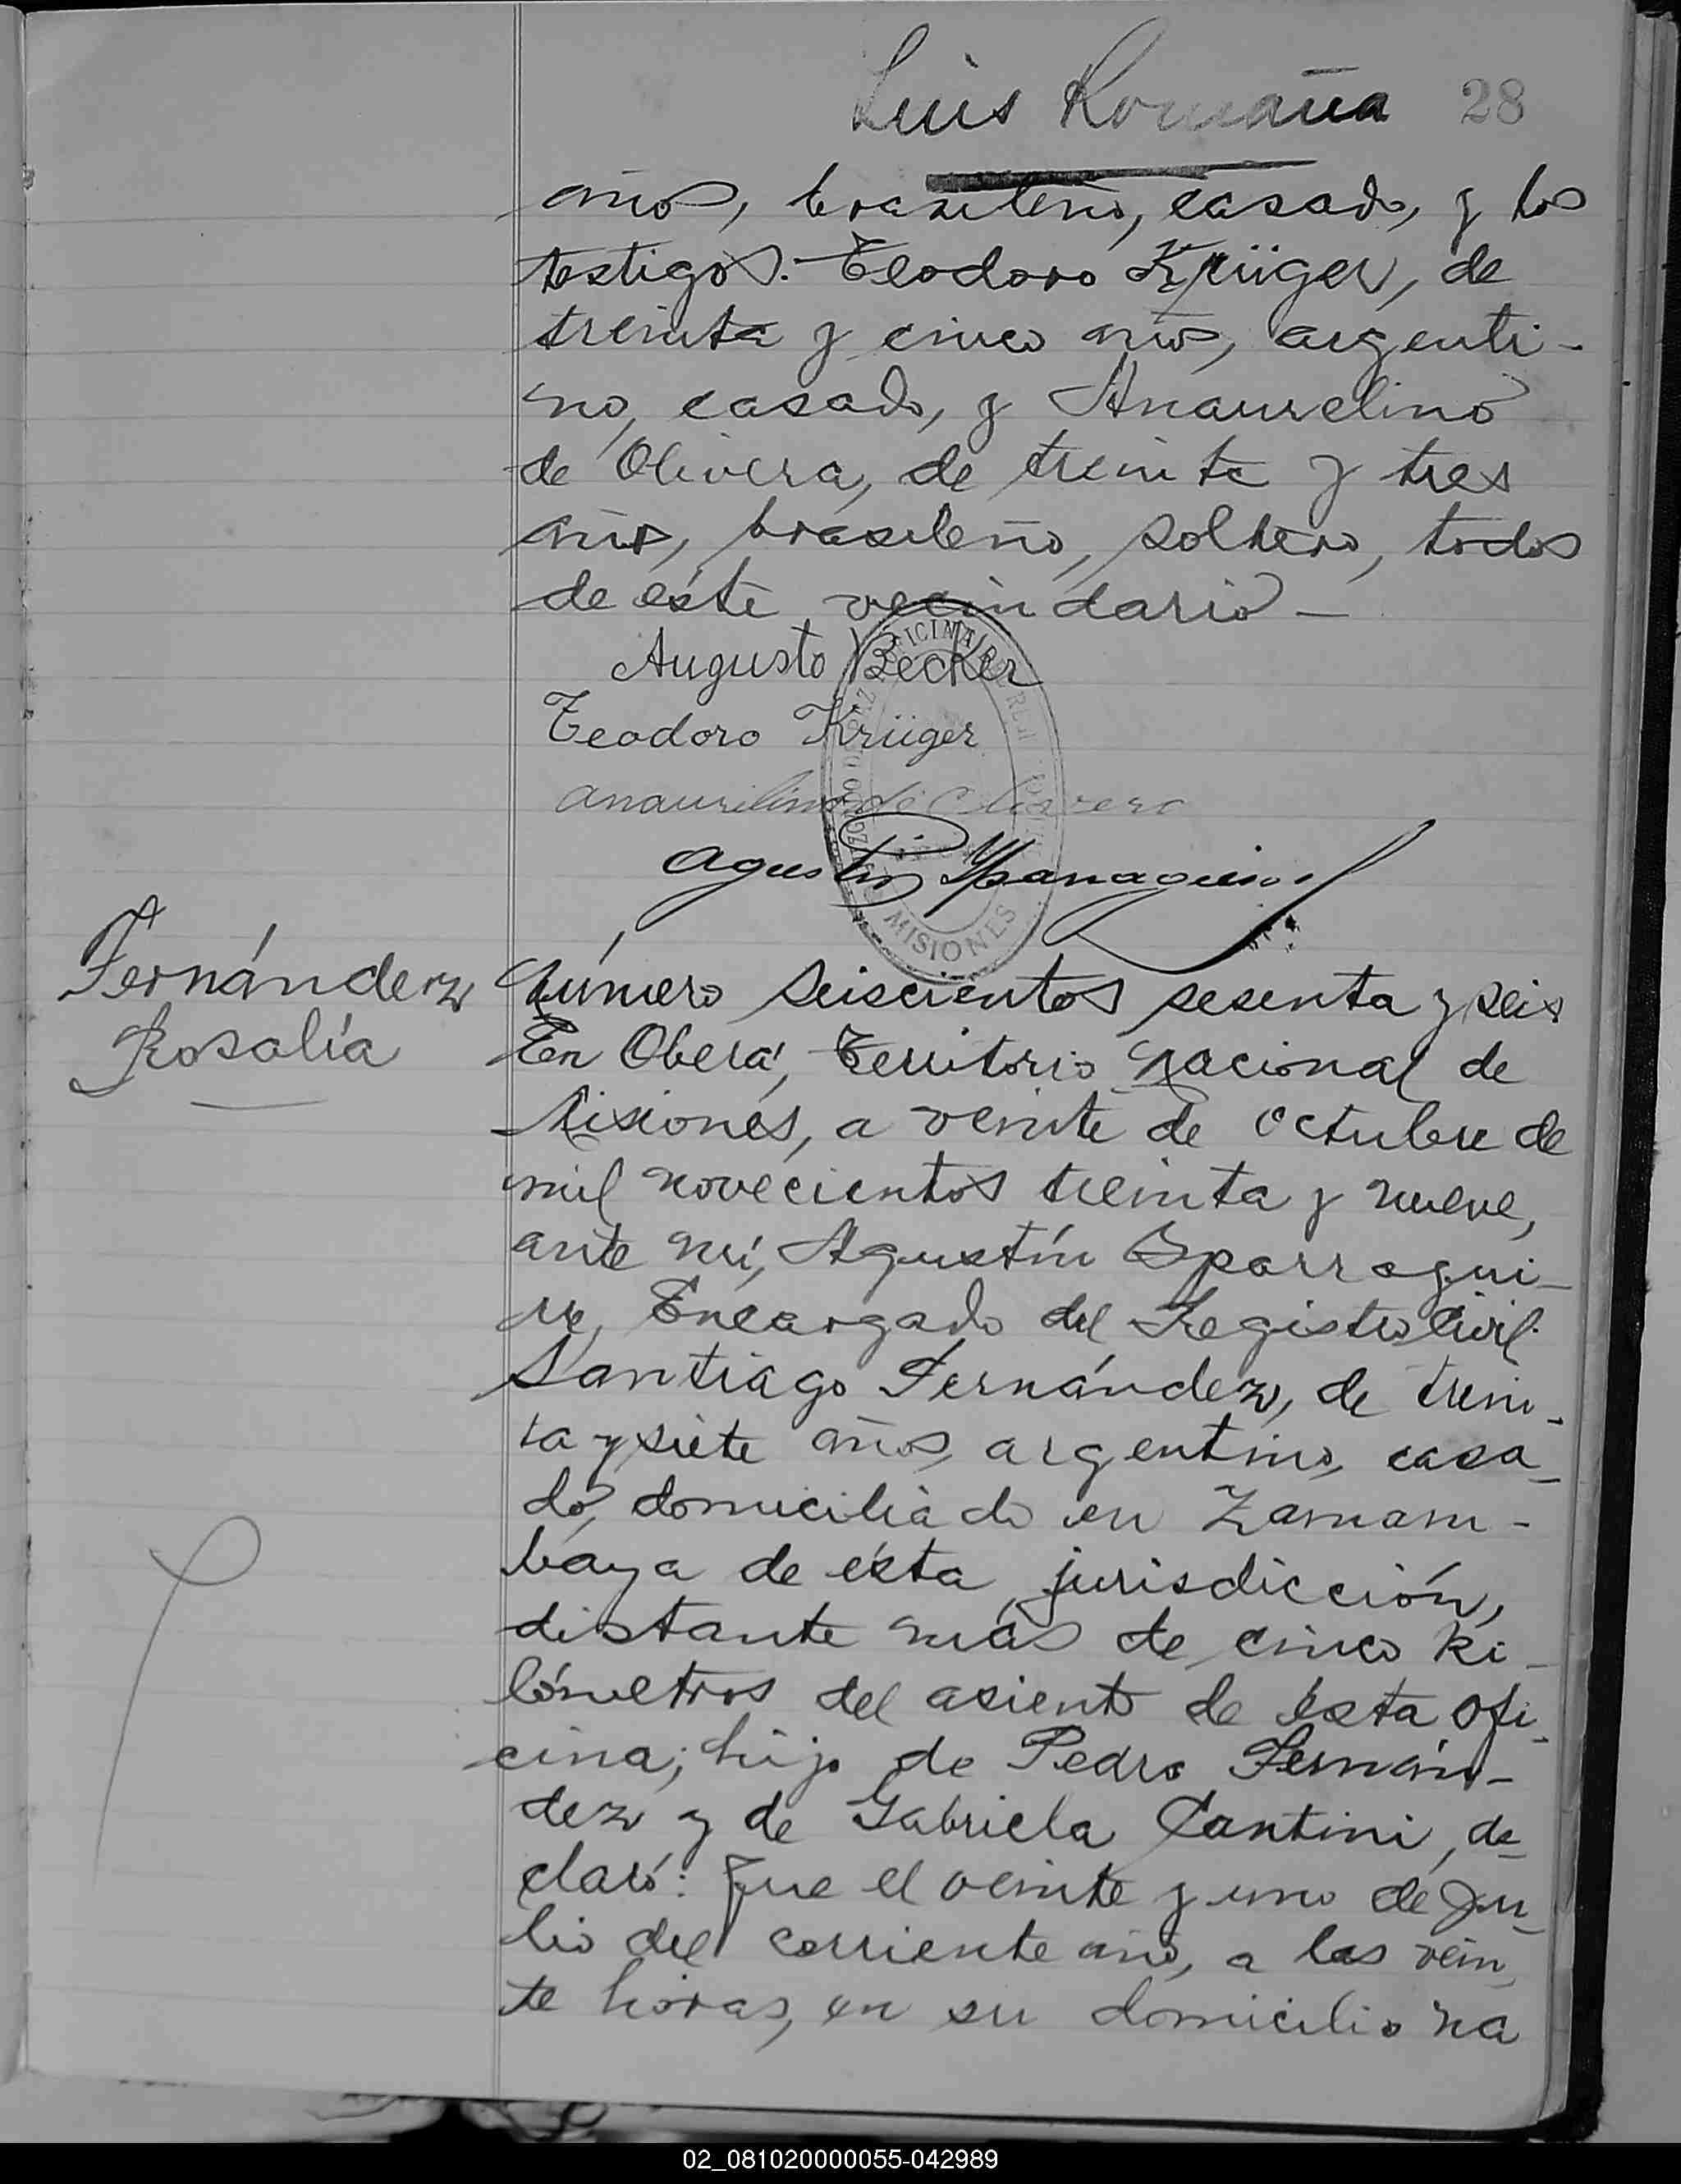 Luis Romaña 28
años, brasileño, casado, y los
testigos.- Teodoro Krüger, de
treinta y cinco años, argenti-
no, casado, y Anaurelino
de Olivera, de treinta y tres
años, brasileño, soltero, todos
de éste vecindario -
Augusto Becker
Teodoro Krüger
Anaurilino de Olivera
Agustin
MISIONES
Fernández
Rosalía
Número seiscientos sesenta y seis
En Oberá, Territorio Nacional de
Misiones, a veinte de Octubre de
mil novecientos treinta y nueve,
ante mí, Agustín Yparragui-
rre, Encargado del Registro Civil.
Santiago Fernández, de trein-
ta y siete años, argentino, casa-
do, domiciliado en Zamam-
baya de ésta jurisdicción,
distante más de cinco ki-
lómetros del asiento de ésta Ofi-
cina; hijo de Pedro Fernán-
dez y de Gabriela Cantini, de-
claró: Que el veinte y uno de Ju-
lio del corriente año, a las vein-
te horas, en su domicilio na
02_081020000055-042989